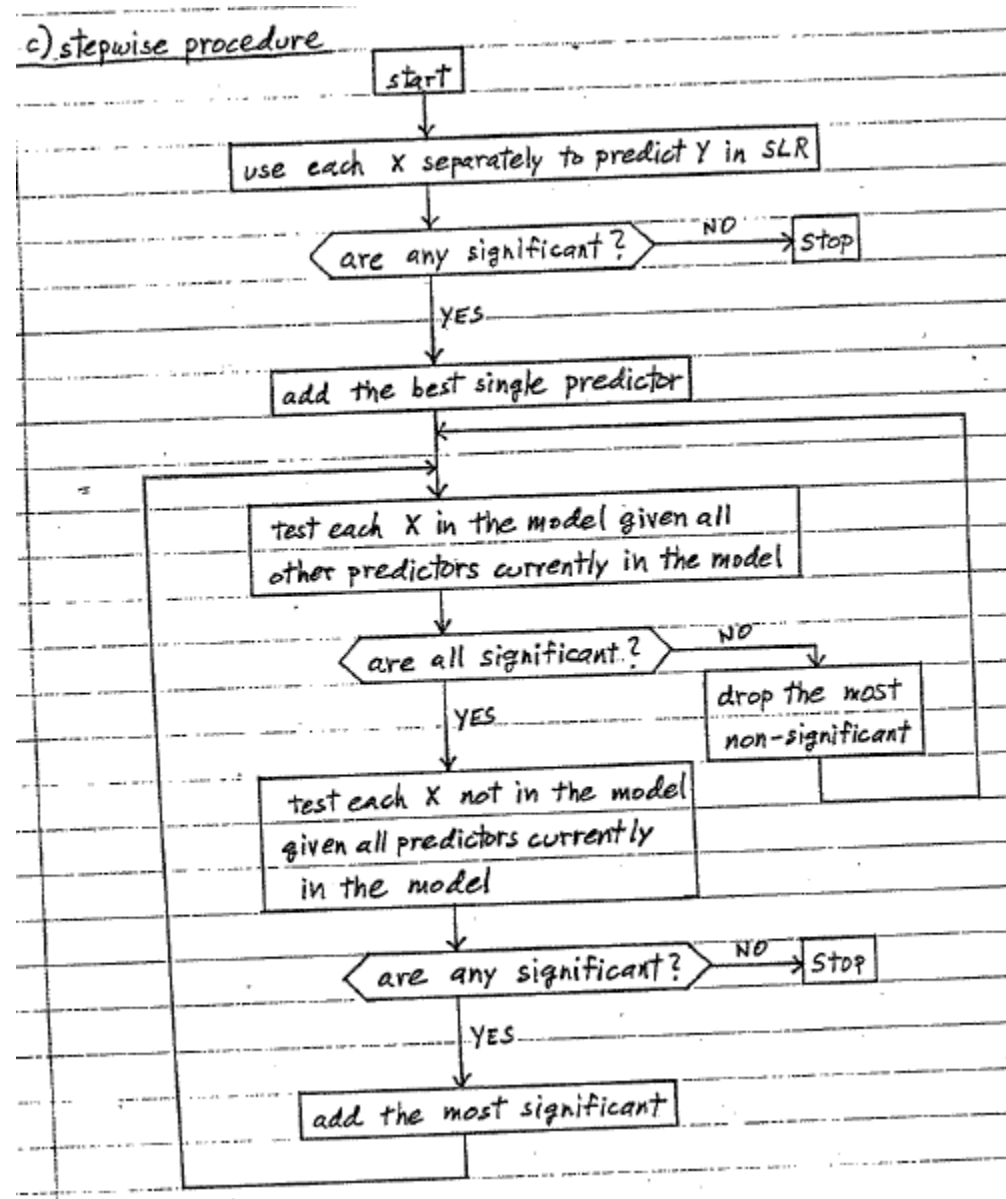 c) stepwise procedure
start
use each X separately to predict Y in SLR
are any significant?
NO
Stop
YES
add the best single predictor
test each X in the model given all
other predictors currently in the model
are all significant?
NO
drop the most
non-significant
YES
test each X not in the model
given all predictors currently
in the model
are any significant?
NO
Stop
YES
add the most significant